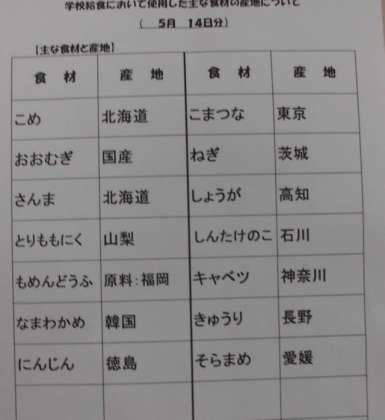 学校給食において使用した主な食材の産地について
( 5月 14日分)
【主な食材と産地】
食 材 産 地 食 材 産 地
こめ 北海道 こまつな 東京
おおむぎ 国産 ねぎ 茨城
さんま 北海道 しょうが 高知
とりももにく 山梨 しんたけのこ 石川
もめんどうふ 原料:福岡 キャベツ 神奈川
なまわかめ 韓国 きゅうり 長野
にんじん 徳島 そらまめ 愛媛